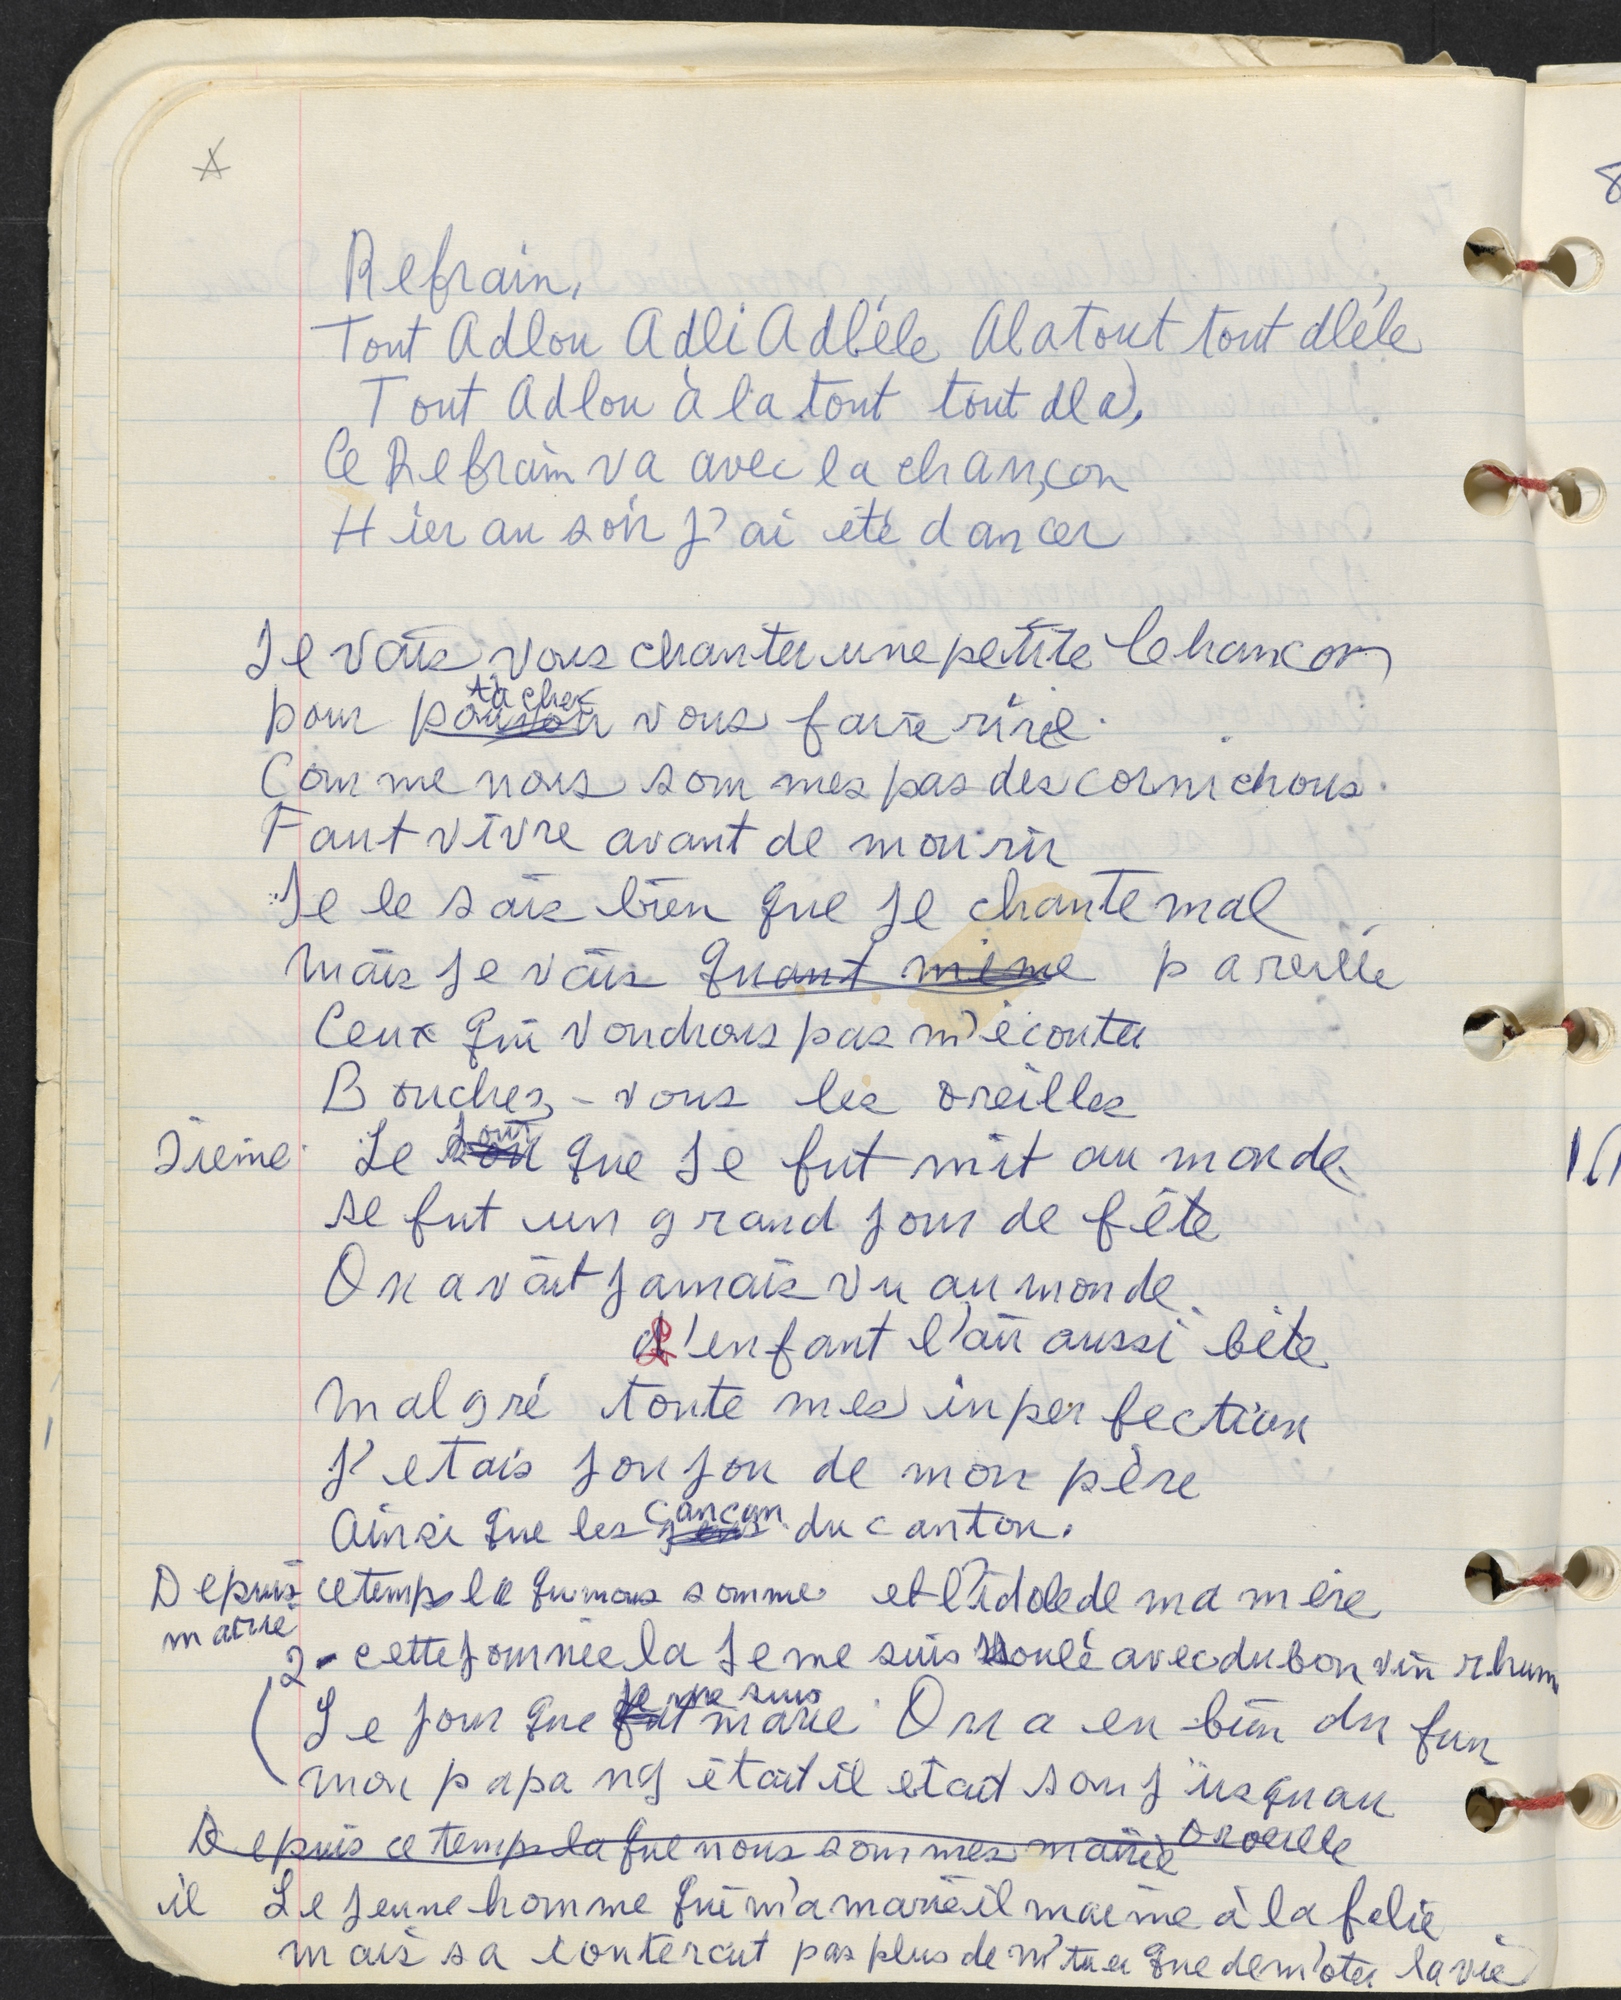 Refrain,
Tout Adlou Adli Adléle Alatout tout dléle
Tout Adlou à la tout tout dla,
Ce Refrain va avec la chançon
Hier au soir j'ai été dancer
Je vais vous chanter une petite Chancon
pour tacher vous faire rire.
Comme nous sommes pas des cornichons.
Faut vivre avant de mourir
Je le sais bien que je chante mal
mais je vais quant mime pareille
Ceux qui voudrons pas m'écouter
Bouchez-vous les oreilles
2ieme Le jour que je fut mit au monde
se fut un grand jour de fête
On avait jamais vu au monde
d'enfant l'air aussi bête
malgré toute mes inperfection
j'etais jou jou de mon père
Ainsi que les cancun du canton.
Depuis ce temps la que nous somme et l'idole de ma mère
marié
2- cette journée la je me suis soulé avec du bon vin rhum
(Le jour que je me suis marié On a eu bien du fun
mon papa était il etait sou jusquau
Depuis ce temps la que nous sommes marié oreille
il Le jeune homme qui m'a marié il maime à la folie
mais sa pas plus de m'tuer que de m'oter la vie